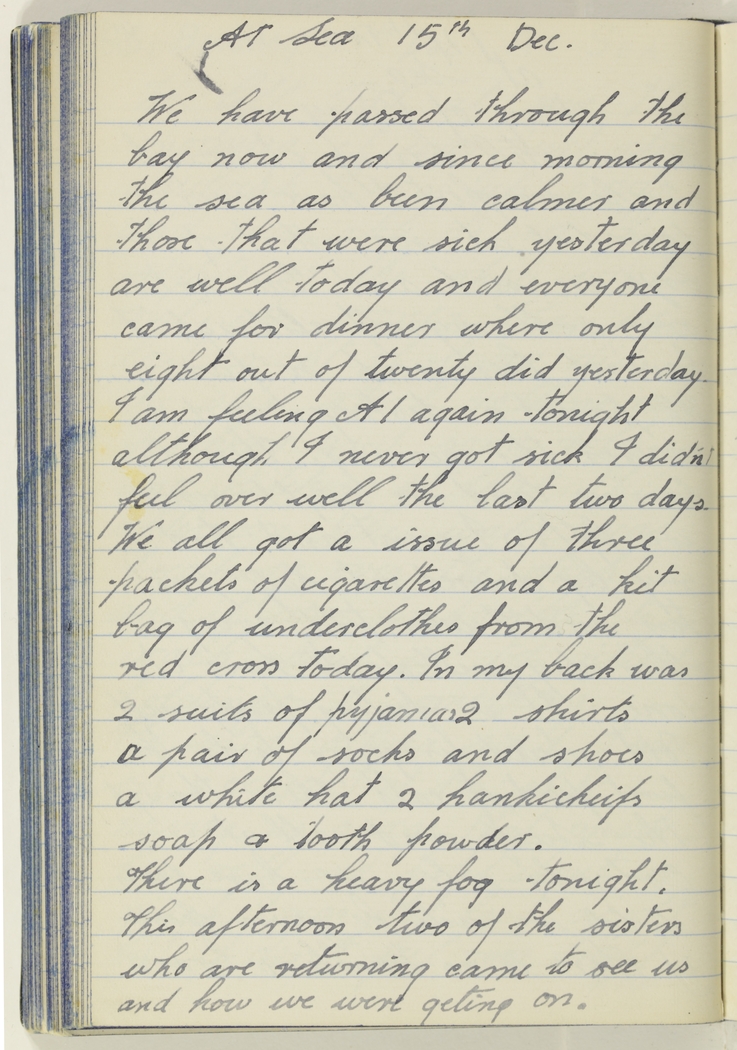 At Sea 15th Dec.
We have passed through the
bay now and since morning
the sea as been calmer and
those that were sick yesterday
are well today and everyone
came for dinner where only
eight out of twenty did yesterday.
I am feeling A1 again tonight
although I never got sick I didn't
feel over well the last two days.
We all got a issue of three
packets of cigarettes and a kit
bag of underclothes from the
red cross today. In my back was
2 suits of pyjamas 2 shirts
a pair of socks and shoes
a white hat 2 hankicheifs
soap & tooth powder.
There is a heavy fog tonight.
This afternoon two of the sisters
who are returning came to see us
and how we were geting on.